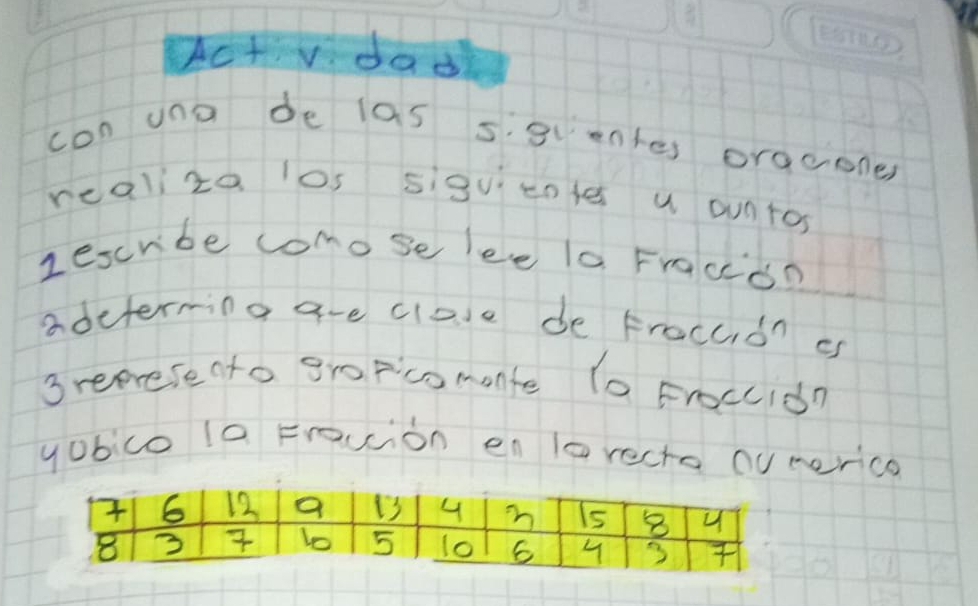 Actividad
con una de las siguientes oraciones
realiza los siguientes 4 puntos
1 escribe como se lee la Fracción
2 determina que clase de Fracción es
3 representa graficamente la Fracción
4 ubico la Fracción en la recta numerica
7 6 12 9 13 4 2 15 8 4
8 3 7 10 5 10 6 4 3 7